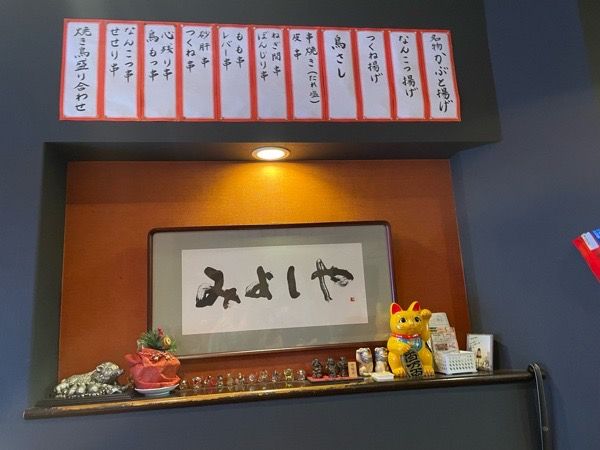 名物 かぶと揚げ
なんこつ揚げ
つくね揚げ
鳥さし
串焼き(たれ 塩)
皮串
ねぎ間串
ぼんじり串
もも串
レバー串
砂肝串
つくね串
心残り串
鳥もつ串
なんこつ串
せせり串
焼き鳥盛り合わせ
みよしや